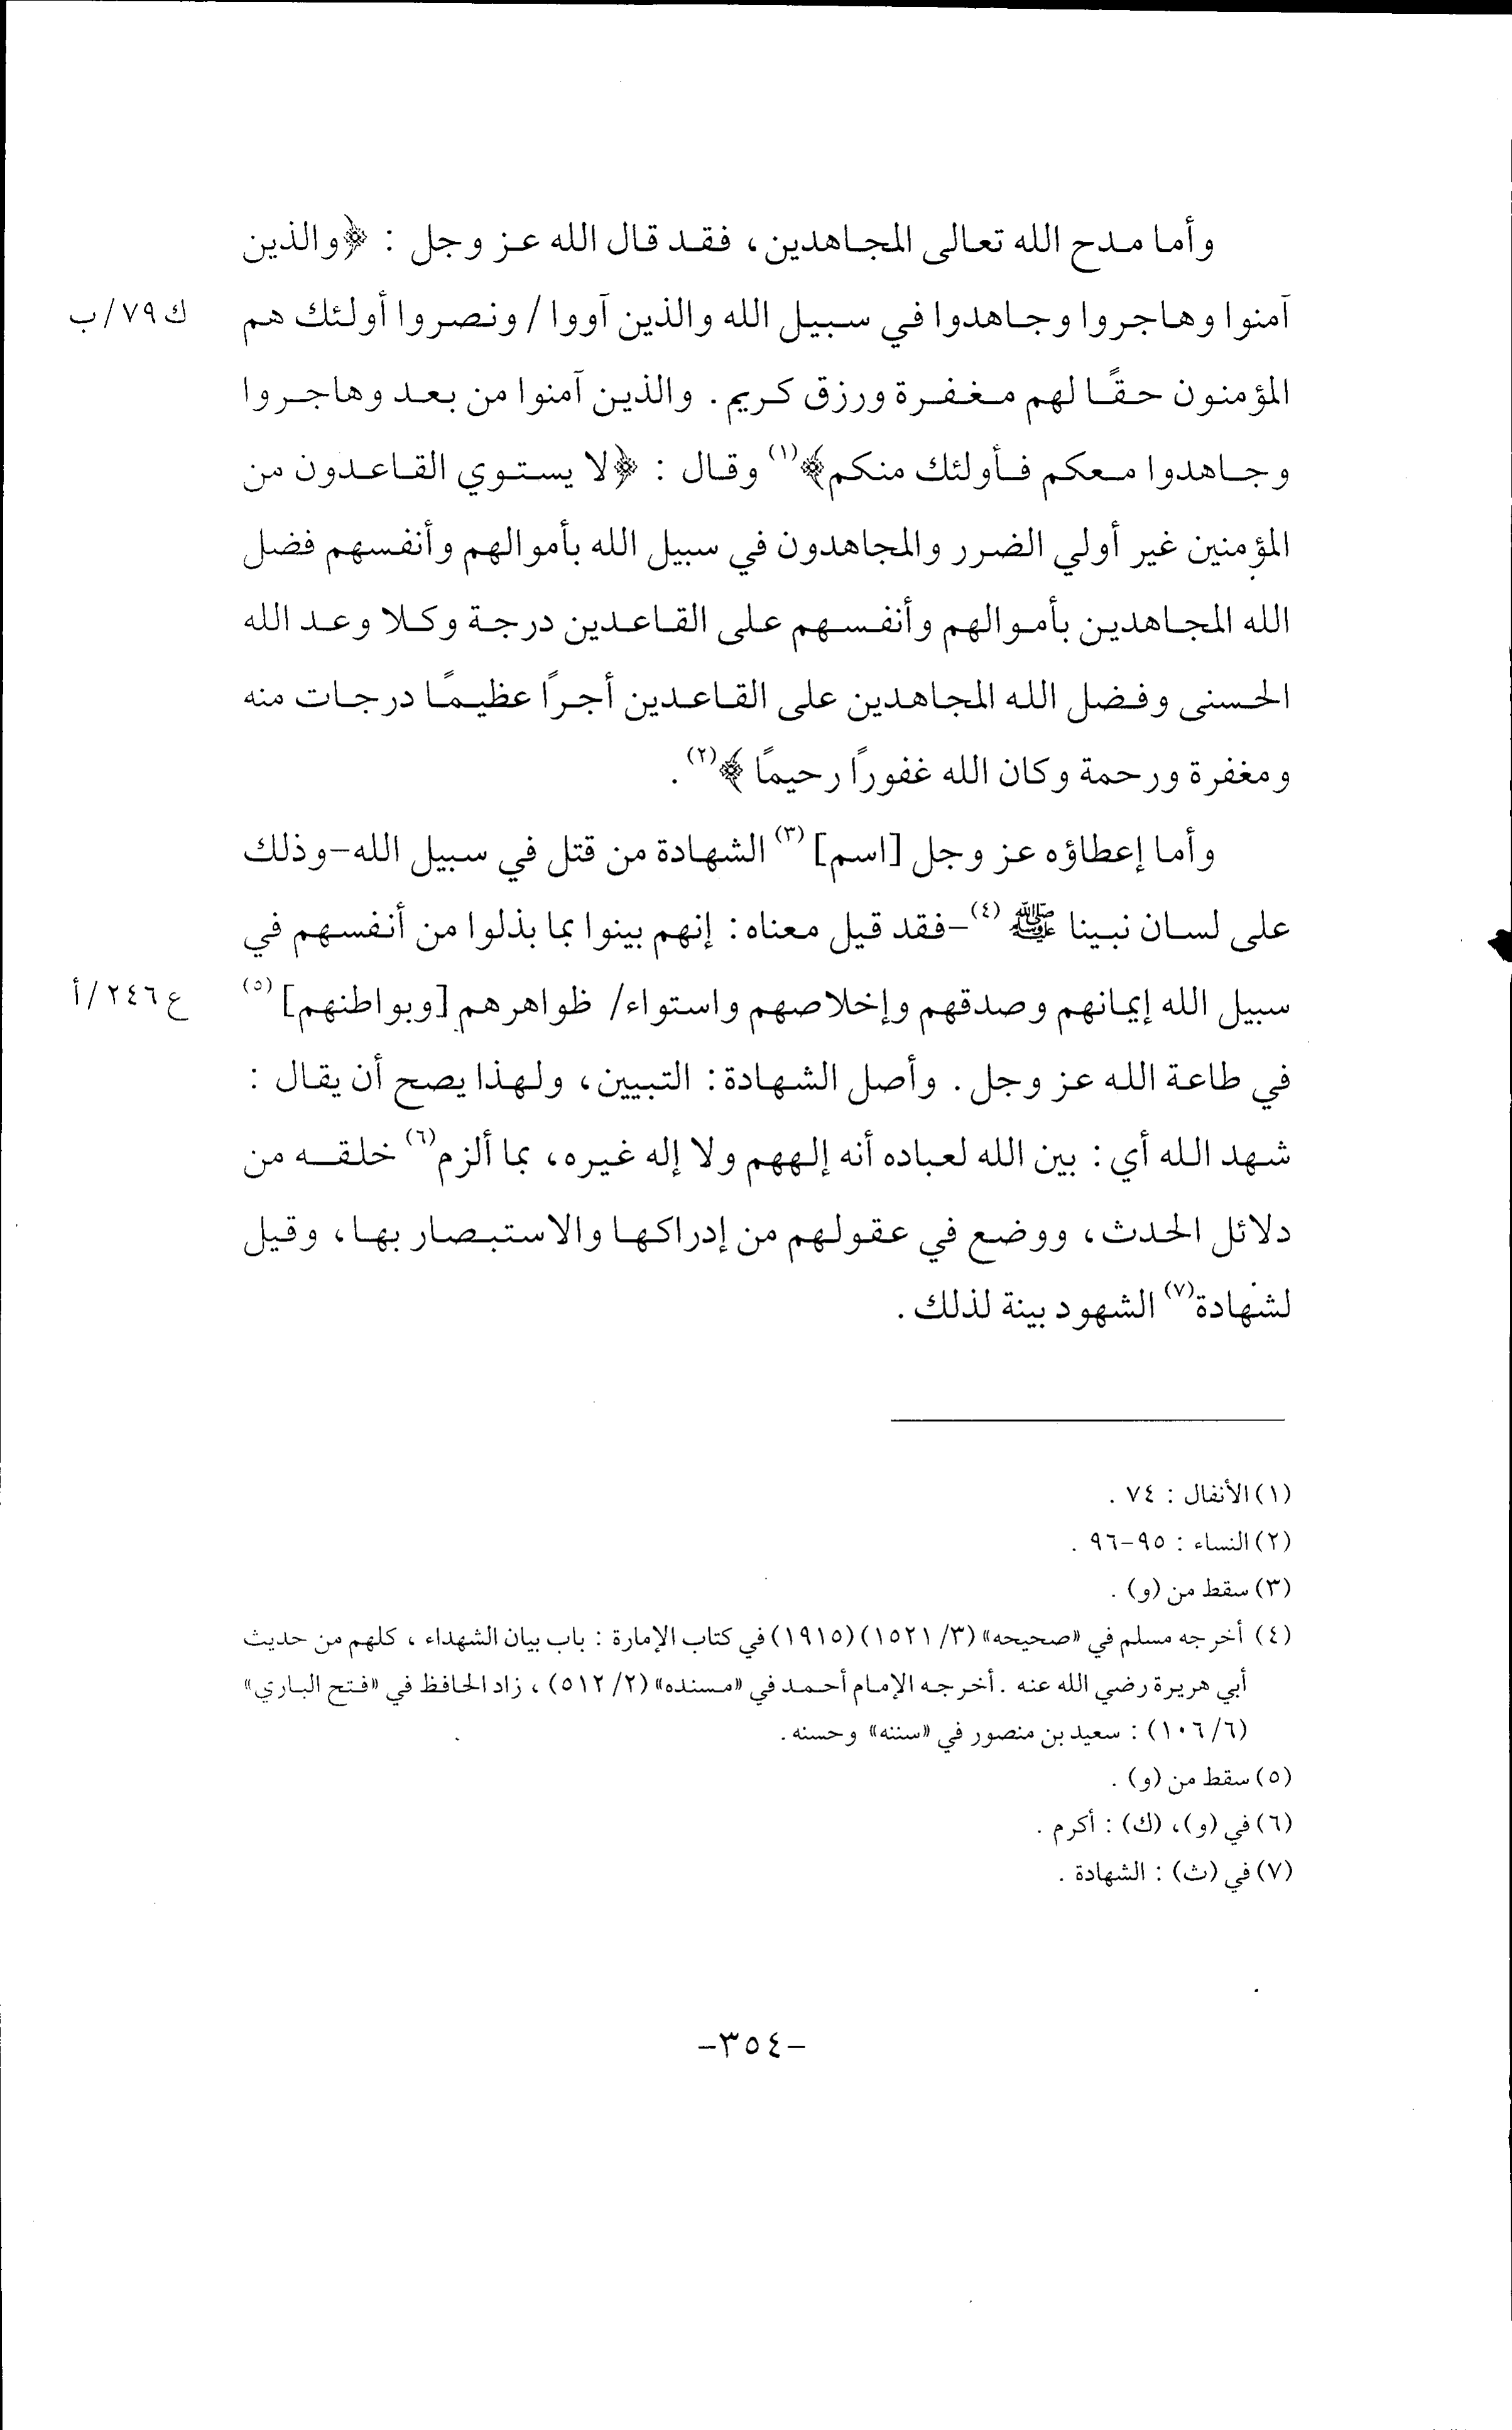 وأما مدح الله تعالى المجاهدين، فقد قال الله عز وجل : ﴿والذين
آمنوا وهاجروا وجاهدوا في سبيل الله والذين آووا / ونصروا أولئك هم
ك ٧٩/ب
المؤمنون حقًا لهم مغفرة ورزق كريم. والذين آمنوا من بعد وهاجروا
وجاهدوا معكم فأولئك منكم﴾(١) وقال : ﴿لا يستوي القاعدون من
المؤمنين غير أولي الضرر والمجاهدون في سبيل الله بأموالهم وأنفسهم فضل
الله المجاهدين بأموالهم وأنفسهم على القاعدين درجة وكلا وعد الله
الحسنى وفضل الله المجاهدين على القاعدين أجرًا عظيمًا درجات منه
ومغفرة ورحمة وكان الله غفورًا رحيمًا ﴾(٢) .
وأما إعطاؤه عز وجل [اسم](٣) الشهادة من قتل في سبيل الله-وذلك
على لسان نبينا ﷺ (٤)-فقد قيل معناه: إنهم بينوا بما بذلوا من أنفسهم في
سبيل الله إيمانهم وصدقهم وإخلاصهم واستواء/ ظواهرهم [وبواطنهم](٥)
ع ٢٤٦/أ
في طاعة الله عز وجل. وأصل الشهادة: التبيين، ولهذا يصح أن يقال :
شهد الله أي: بين الله لعباده أنه إلههم ولا إله غيره، بما ألزم(٦) خلقه من
دلائل الحدث، ووضع في عقولهم من إدراكها والاستبصار بها، وقيل
لشهادة(٧) الشهود بينة لذلك.
(١) الأنفال : ٧٤ .
(٢) النساء : ٩٥-٩٦ .
(٣) سقط من (و) .
(٤) أخرجه مسلم في «صحيحه» (٣/ ١٥٢١) (١٩١٥) في كتاب الإمارة : باب بيان الشهداء ، كلهم من حديث
أبي هريرة رضي الله عنه . أخرجه الإمام أحمد في «مسنده» (٢/ ٥١٢) ، زاد الحافظ في «فتح الباري»
(٦/ ١٠٦) : سعيد بن منصور في «سننه» وحسنه.
(٥) سقط من (و) .
(٦) في (و)، (ك) : أكرم .
(٧) في (ث) : الشهادة .
-٣٥٤-